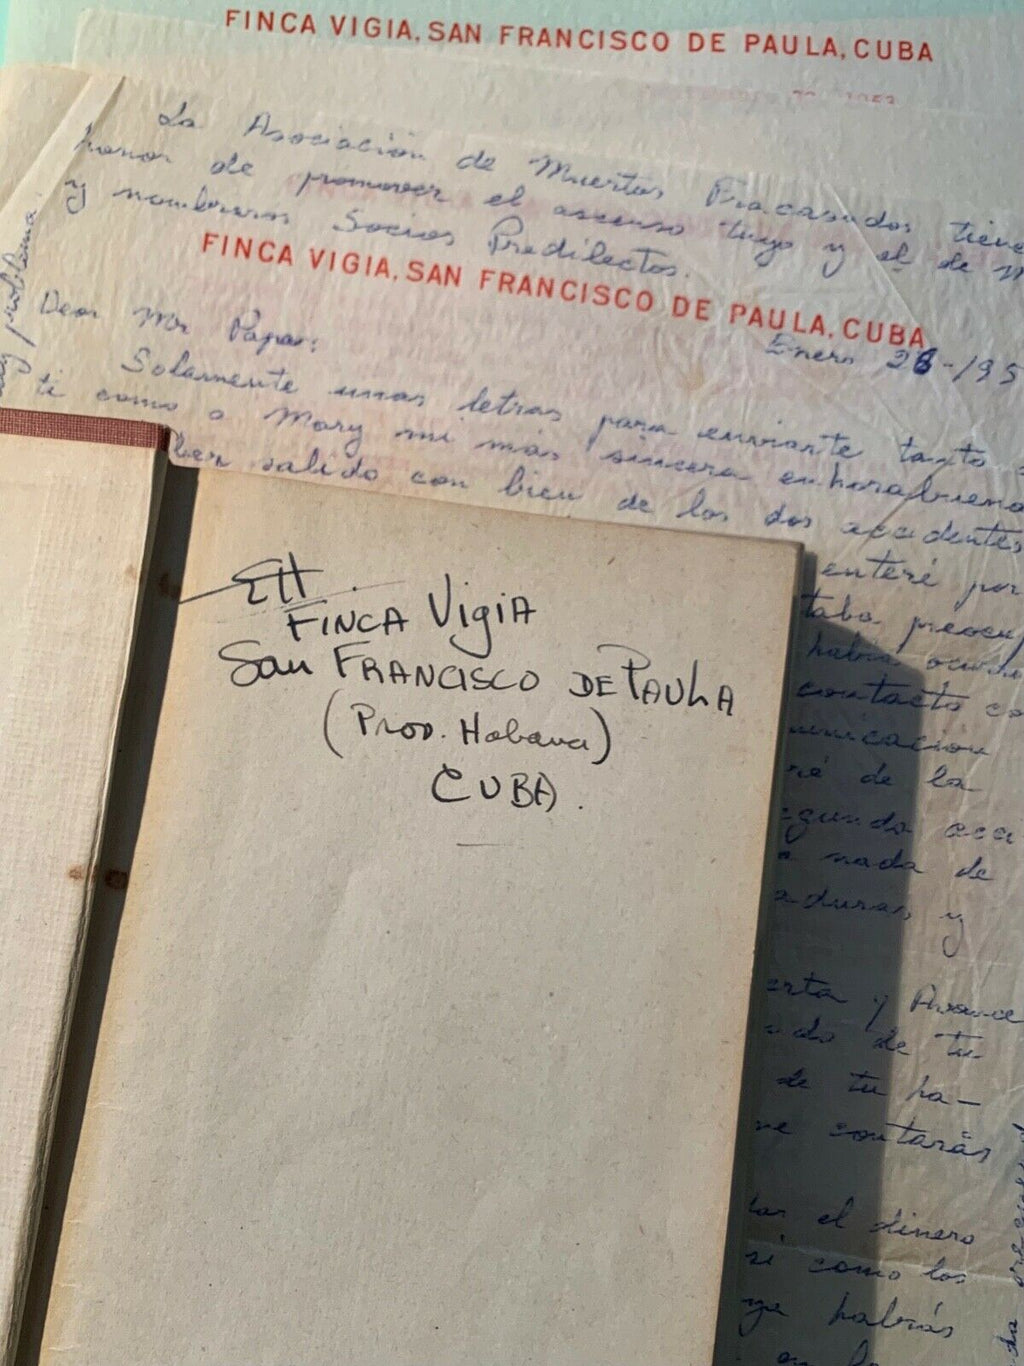 FINCA VIGIA, SAN FRANCISCO DE PAULA, CUBA
La Asociación de Muertos Fracasados tiene
honor de promover el ascenso tuyo y el de M
y nombraros Socios Predilectos.
FINCA VIGIA, SAN FRANCISCO DE PAULA, CUBA
Enero 28-195
Dear Mr Papa:
Solamente unas letras para enviarte tanto a
ti como a Mary mi más sincera enhorabuena
ber salido con bien de los dos accidentes
enteré por
taba preocu
había ocurri
contacto co
unicacion
ré de la
egundo acci
a nada de
aduras y
erta y Avance
ndo de tu
de tu ha-
me contarás
el dinero
si como los
ya habrás
problema
EH.
FINCA VigiA
San FRANCISCO DE PAULA
(Prov. Habana)
CUBA.